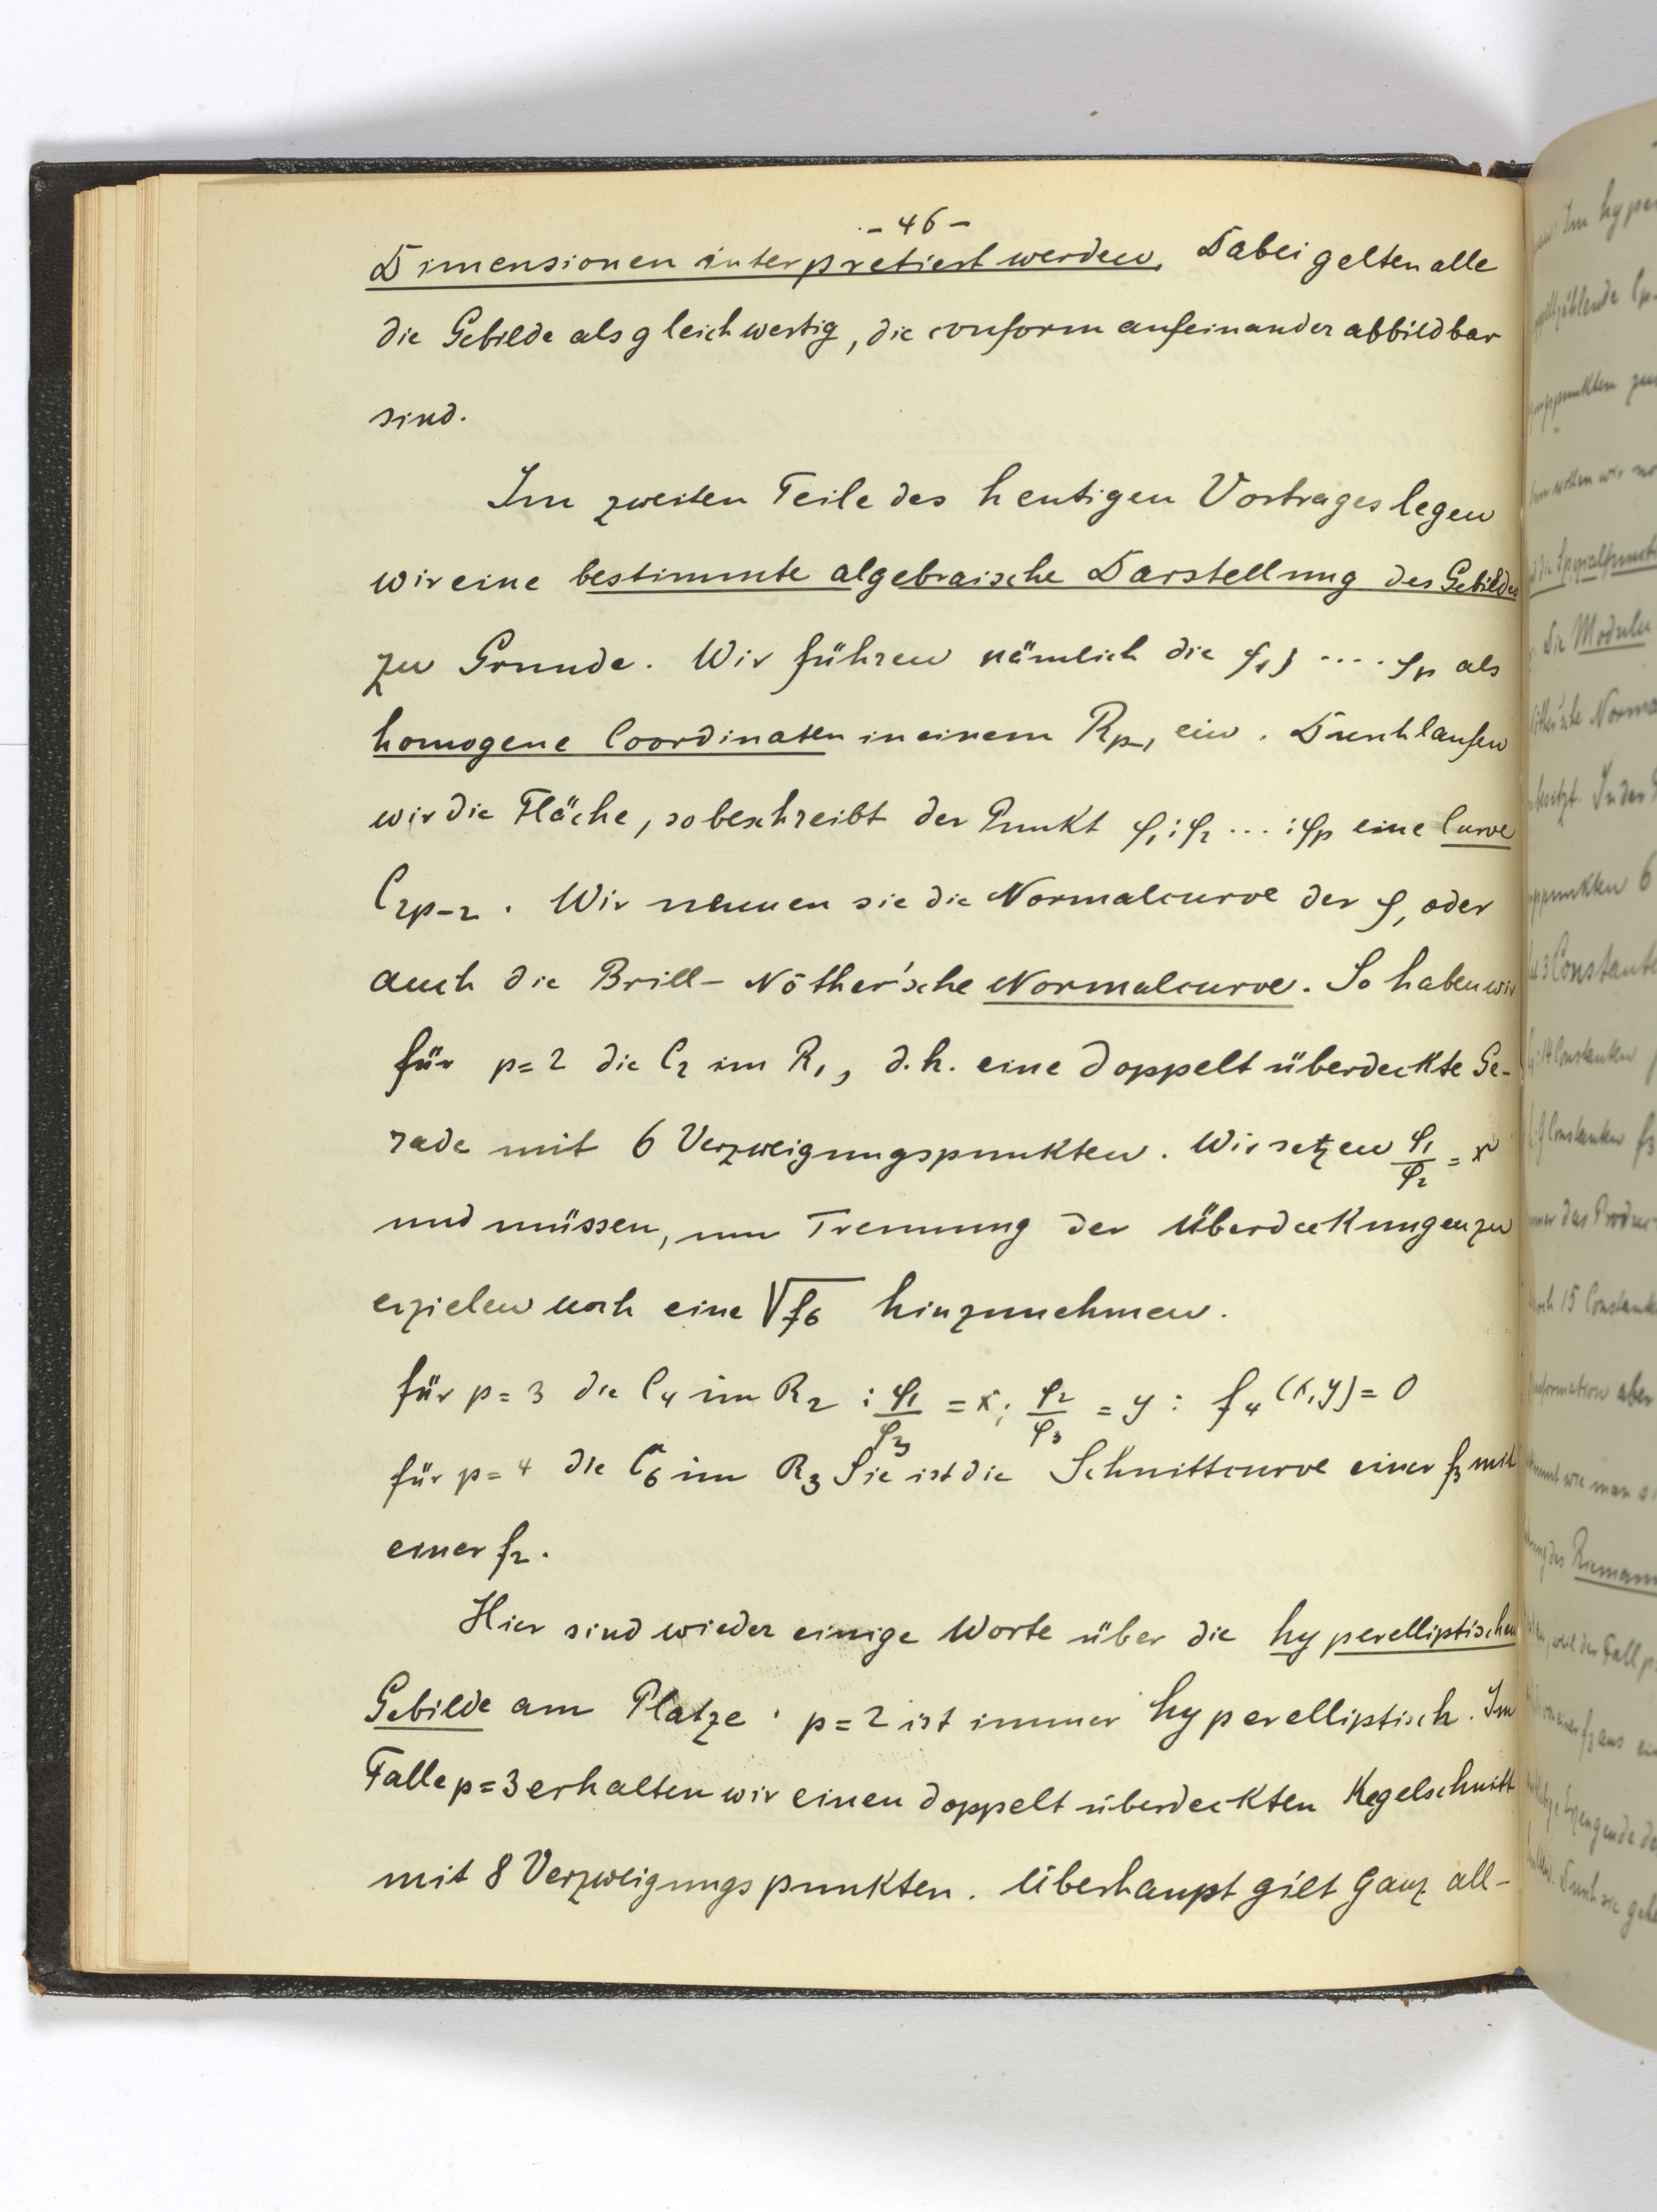 - 46 -
Dimensionen interpretiert werden. Dabei gelten alle
die Gebilde als gleichwertig, die conform aufeinander abbildbar
sind.
Im zweiten Teile des heutigen Vortrages legen
wir eine bestimmte algebraische Darstellung des Gebildes
zu Grunde. Wir führen nämlich die φ₁, .... φₚ als
homogene Coordinaten in einem Rₚ₋₁ ein. Durchlaufen
wir die Fläche, so beschreibt der Punkt φ₁:φ₂ ... :φₚ eine Curve
C₂ₚ₋₂. Wir nennen sie die Normalcurve der φ, oder
auch die Brill-Nöther'sche Normalcurve. So haben wir
für p=2 die C₂ im R₁, d.h. eine doppelt überdeckte Ge-
rade mit 6 Verzweigungspunkten. Wir setzen φ₁/φ₂ = x
und müssen, um Trennung der Überdeckungen zu
erzielen noch eine √f₆ hinzunehmen.
für p=3 die C₄ im R₂ : φ₁/φ₃ = x; φ₂/φ₃ = y : f₄(x,y)=0
für p=4 die C₆ im R₃ Sie ist die Schnittcurve einer f₃ mit
einer f₂.
Hier sind wieder einige Worte über die hyperelliptischen
Gebilde am Platze. p=2 ist immer hyperelliptisch. Im
Falle p=3 erhalten wir einen doppelt überdeckten Kegelschnitt
mit 8 Verzweigungspunkten. Überhaupt gilt ganz all-
Im hyper
Die Moduln
Constanten
15
Riemann